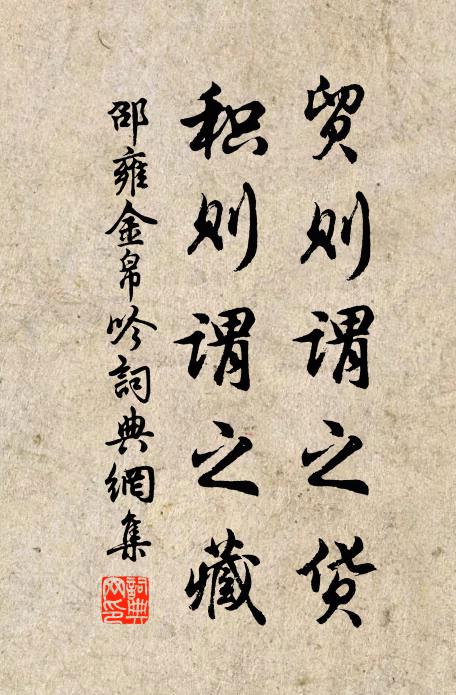 贸则谓之货
积则谓之藏
邵雍金帛吟詞典網集
詞典网印